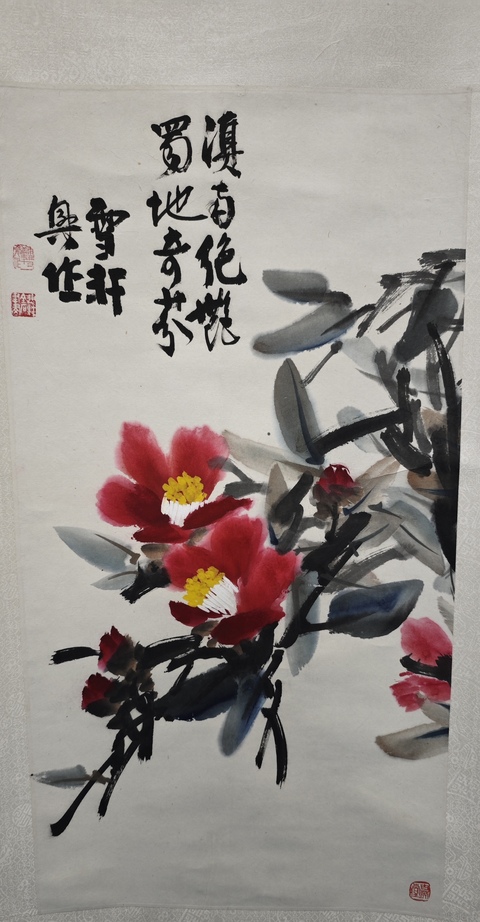 滇南绝艳
蜀地奇芬
雪轩
具作